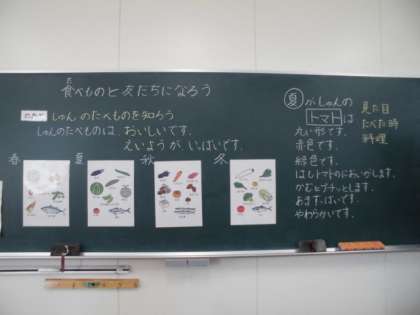 食べものと友だちになろう
た
しゅんのたべものを知ろう
しゅんのたべものは、おいしいです。
えいようが、いっぱいです。
春 夏 秋 冬
夏がしゅんの
トマトは
丸い形です。
赤色です。
緑色です。
トマトのにおいがします。
かむとプチッとします。
やわらかいです。
見た目
たべた時
料理